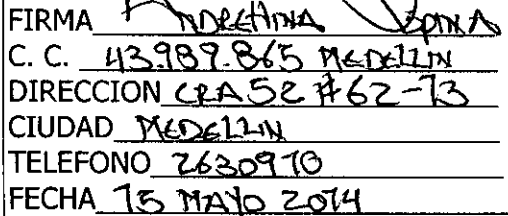 FIRMA ANDRETHINA OSPINA
C. C. 43.989.865 MEDELLIN
DIRECCION CRA 52 #62-13
CIUDAD MEDELLIN
TELEFONO 2630910
FECHA 15 MAYO 2014